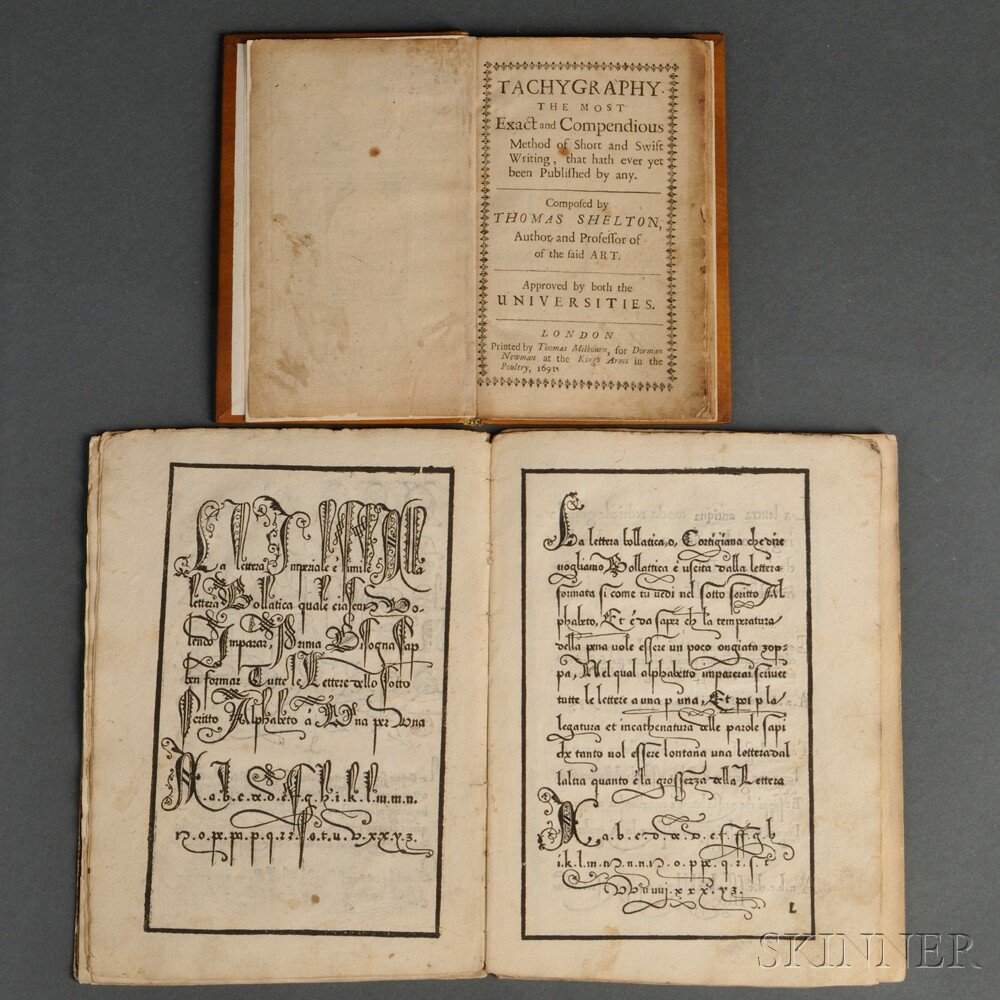 TACHYGRAPHY.
THE MOST
Exact and Compendious
Method of Short and Swift
Writing, that hath ever yet
been Publiſhed by any.
Compoſed by
THOMAS SHELTON,
Author, and Profeſſor of
of the ſaid ART.
Approved by both the
UNIVERSITIES.
LONDON
Printed by Thomas Milbourn, for Dorman
Newman at the King's Arms in the
Poultry, 1691.
La lettera Imperiale e simile a la
lettera Bollatica quale ciascun Vo-
lendo Imparar, Prima Bisogna sap
ben formar Tutte le Lettere dello Sotto
Scritto Alphabeto a Una per Una
A.a.b.c.d.e.f.g.h.i.k.l.m.n.
o.p.q.r.s.t.u.v.x.x.y.z.
La lettera bollatica, o, Cortigiana che dire
uogliamo Bollattica è uscita dalla lettera
formata si come tu uedi nel sotto scritto Al
phabeto, Et è da saper ch la temperatura
della pena uole essere un poco ongiata zop-
pa, Nel qual alphabetto imparerai scriuer
tutte le lettere a una p una, Et poi p la
legatura et incathenatura delle parole sapi
che tanto uol essere lontana una lettera dal
laltra quanto è la grossezza della Lettera
A.a.b.c.d.e.f.ff.g.h
i.k.l.m.n.o.p.q.r.s.t
x.x.x.y.z.
L
SKINNER